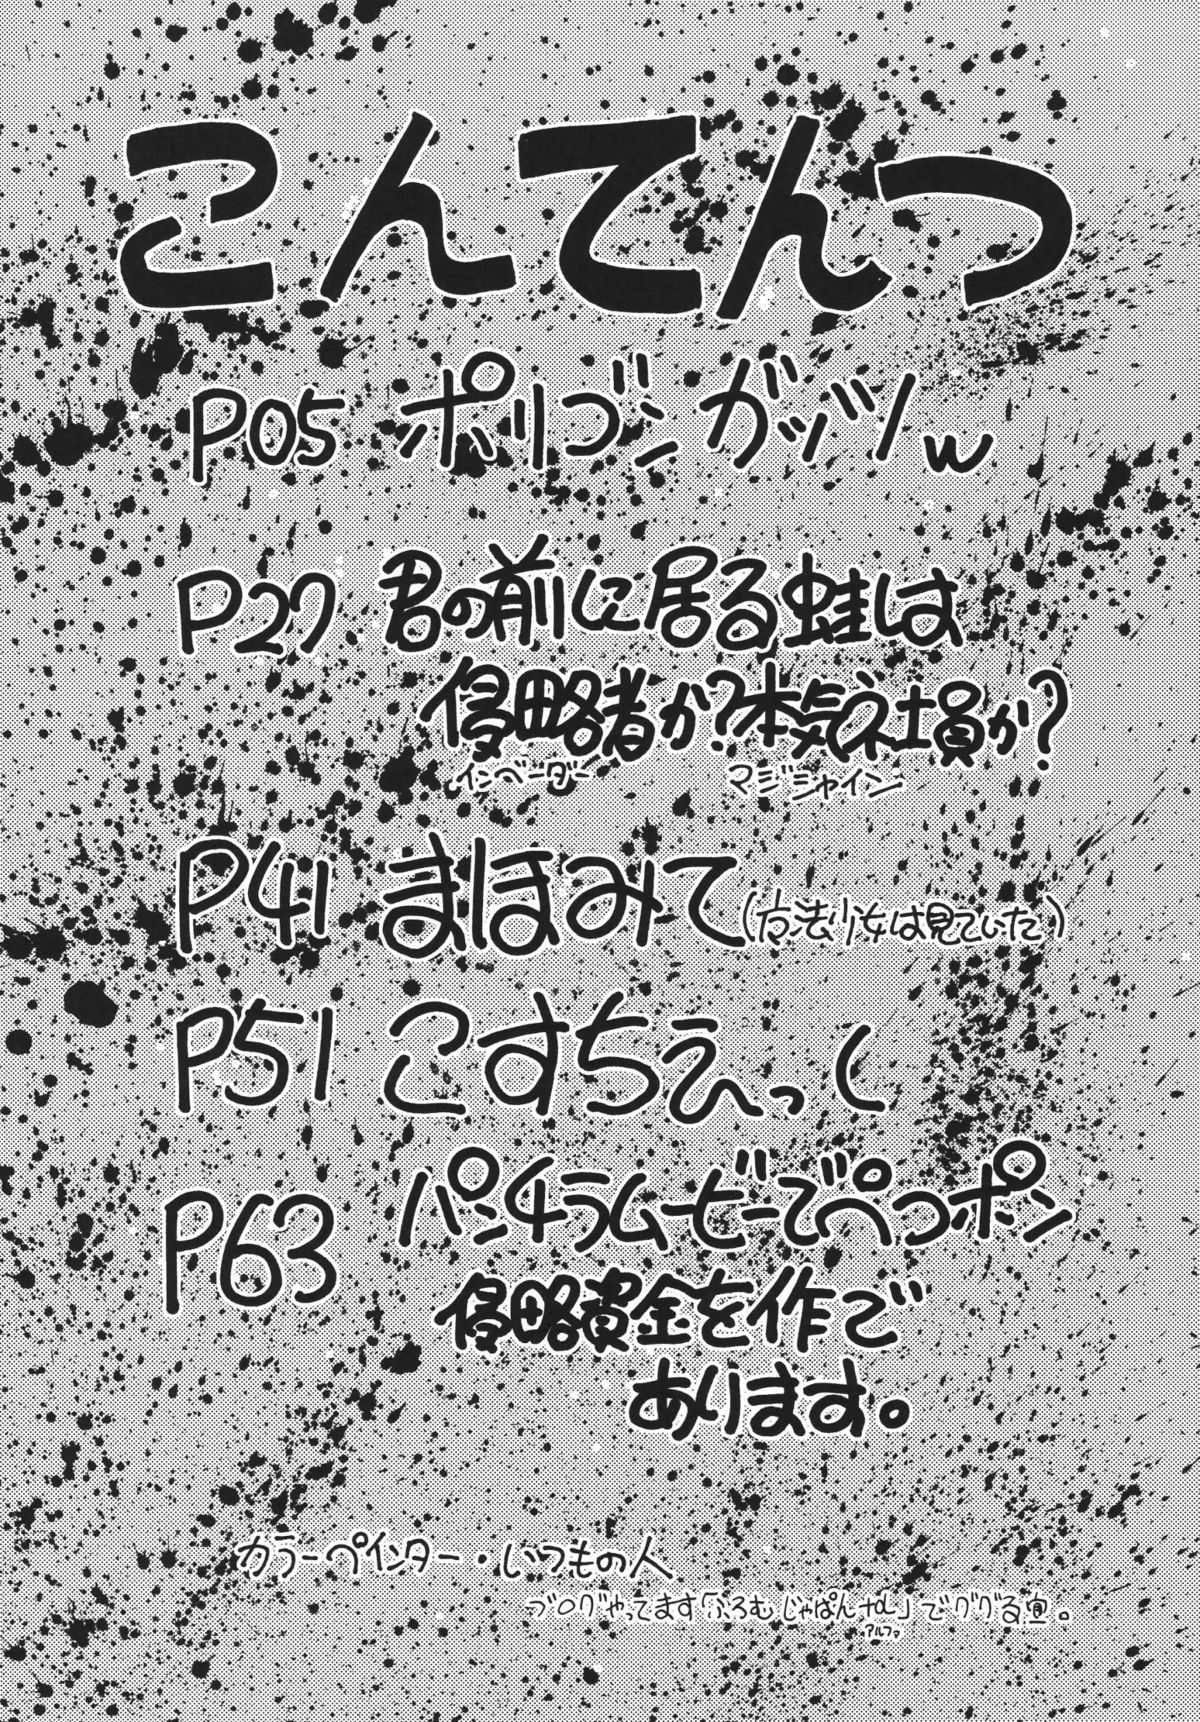 こんてんつ
P05 ポリゴンガッツw
P27 君の前に居る蛙は
侵略者か?本気社員か?
インベーダー マジシャイン
P41 まほみて(方法少女は見ていた)
P51 こすちぇっく
P63 パンチラムービーでペっポン
侵略資金を作で
あります。
カラーペインター・いつもの人
ブログやってます「ふろむじゃぱん+α」でググる宜。
アルファ